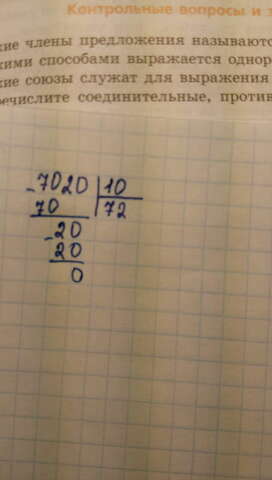 Контрольные вопросы и з
кие члены предложения называютс
кими способами выражается однор
кие союзы служат для выражения
речислите соединительные, против
- 7020 | 10
70 | 72
- 20
20
0